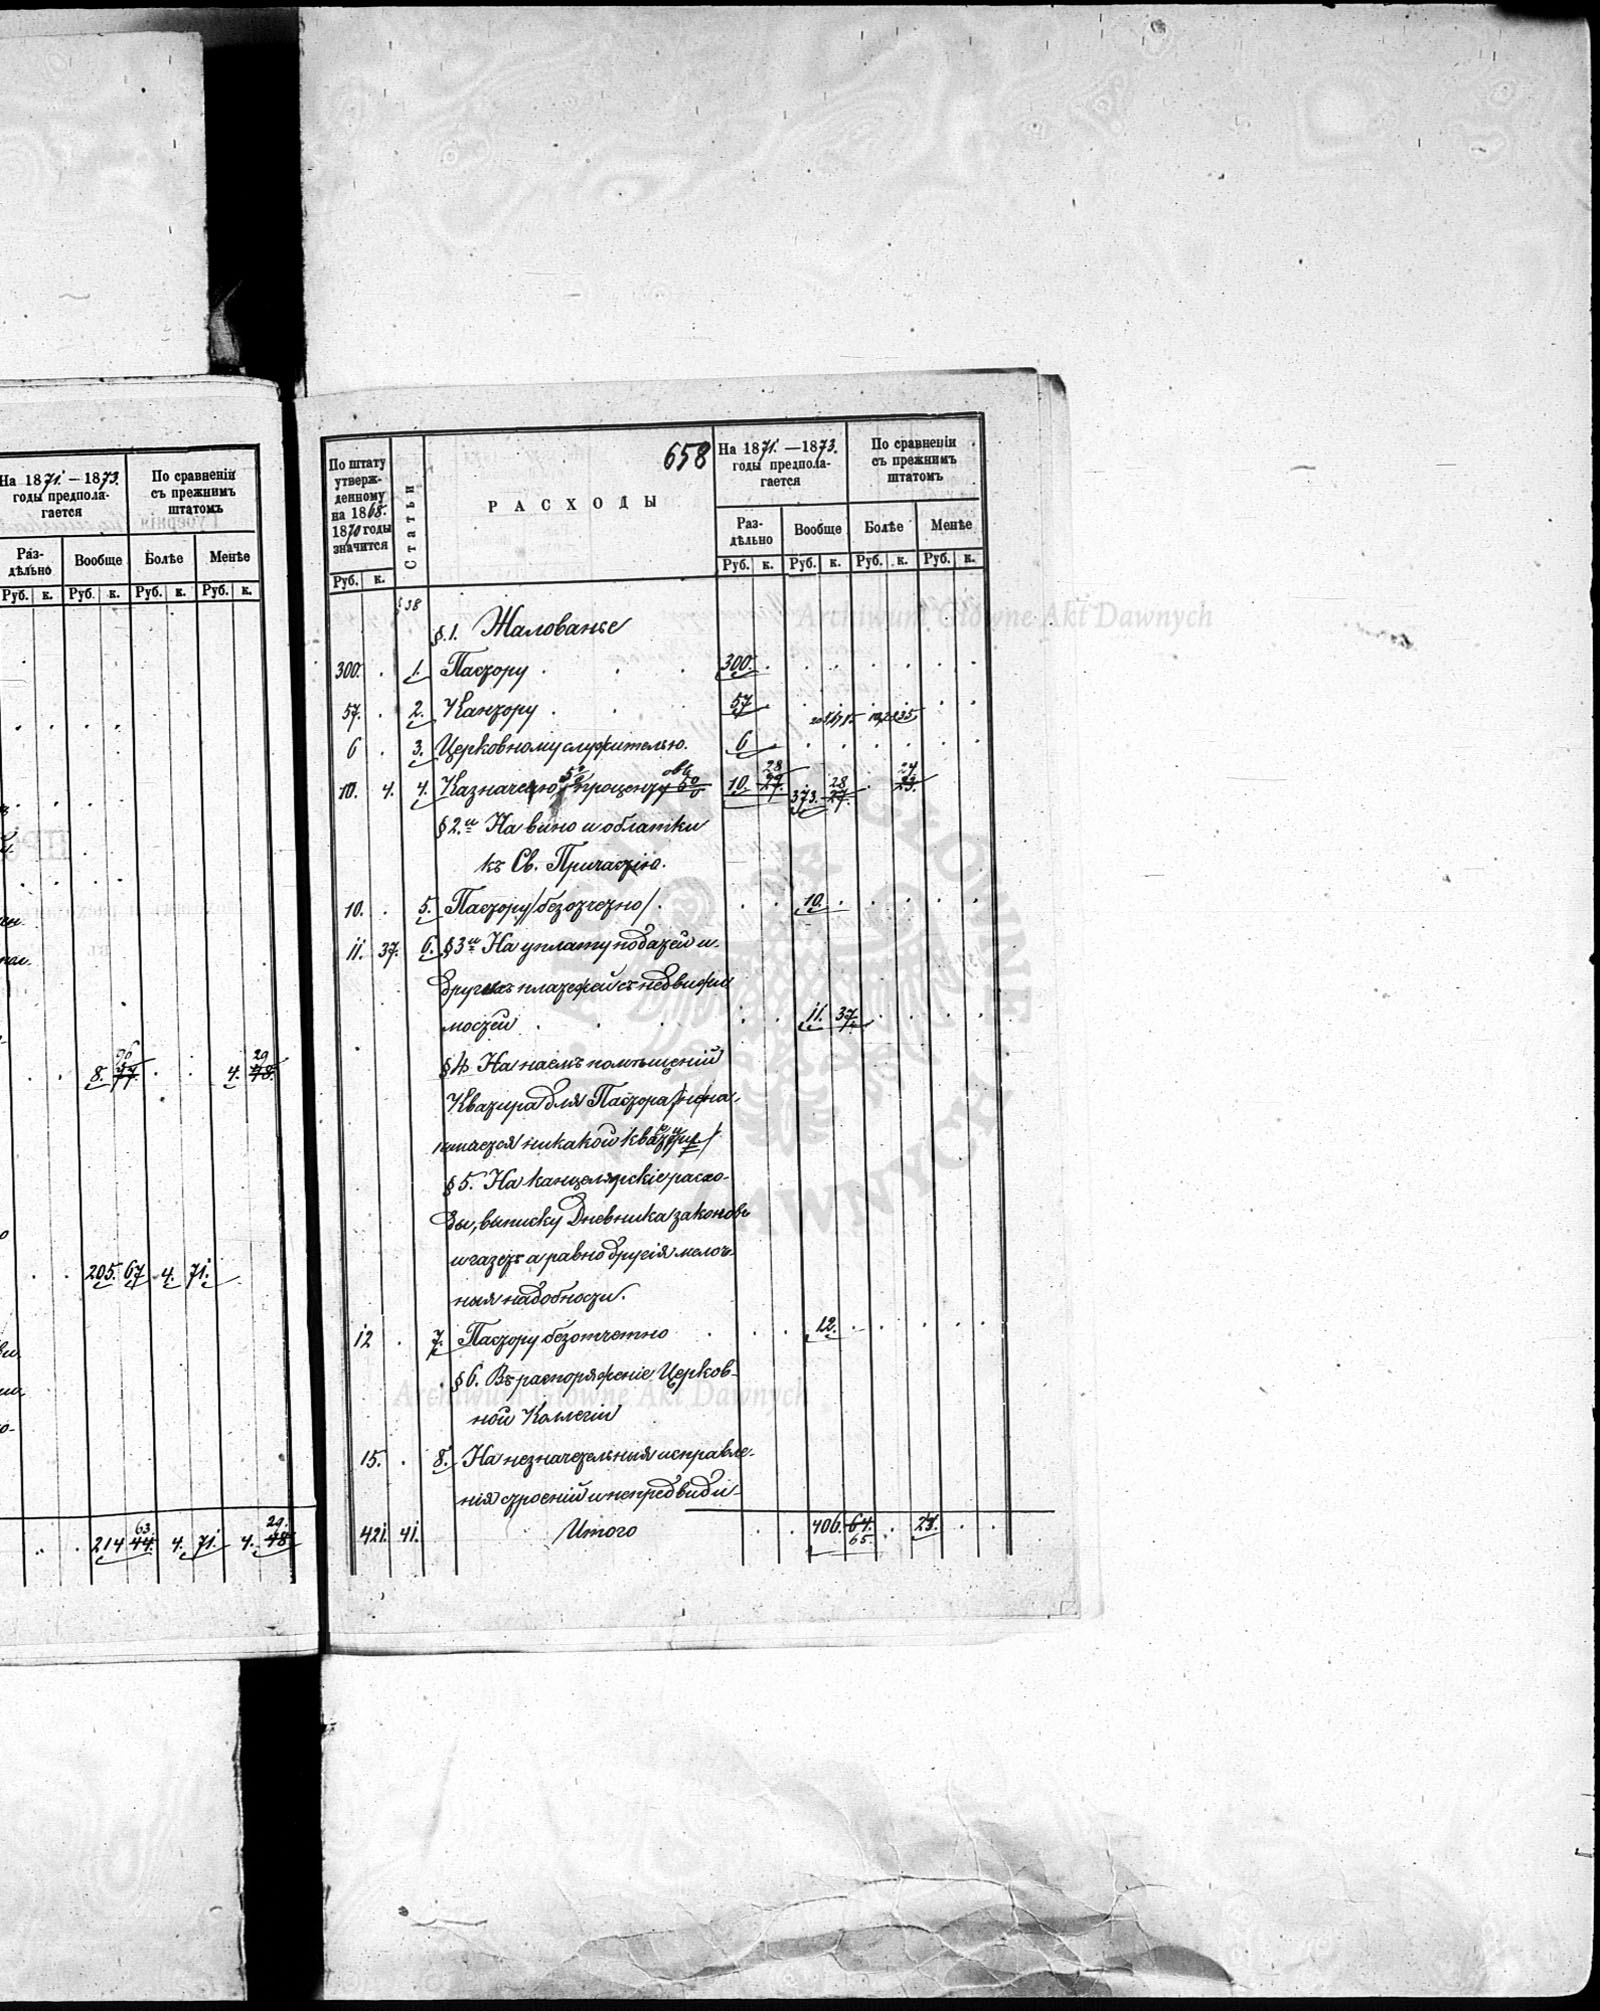 На 1871. — 1873.
годы предпола-
гается
По сравненіи
съ прежнимъ
штатомъ
Раз-
дѣльно
Вообще
Болѣе
Менѣе
Руб. к. Руб. к. Руб. к. Руб. к.
96 29
8. 77. 4. 48.
205. 67 4. 71.
63 29.
214 44. 4. 71. 4. 48
По штату
утверж-
денному
на 1868.
1870 годы
значится
Статьи
658
РАСХОДЫ
На 1871. — 1873.
годы предпола-
гается
По сравненіи
съ прежнимъ
штатомъ
Раз-
дѣльно
Вообще
Болѣе
Менѣе
Руб. к. Руб. к. Руб. к. Руб. к. Руб. к.
§ 38
§. 1. Жалованье
300. 1. Пастору 300.
57. 2. Кантору 57
6 3. Церковному служителю. 6
28 28 24
10. 4. 4. Казначею процента 10. 29 373. 27. 23.
§ 2.й На вино и облатки
къ Св. Причастію.
10. 5. Пастору /безотчетно/. 10.
11. 37. 6. § 3й На уплату податей и
другихъ платежей съ недвижи
мостей 11. 37.
§ 4. На наемъ помѣщеній
Квартира для Пастора
никакой
§ 5. На канцелярскіе расхо-
ды, выписку Дневника законовъ
и газетъ а равно другія мелоч-
ныя надобности.
12 7. Пастору безотчетно 12.
§ 6. Въ распоряженіе Церков-
ной Коллегіи
15. 8. На незначительныя исправле-
нія строеній и непредвиди-
421. 41. Итого 406. 64. 24.
65.
Archiwum Główne Akt Dawnych
Archiwum Główne Akt Dawnych